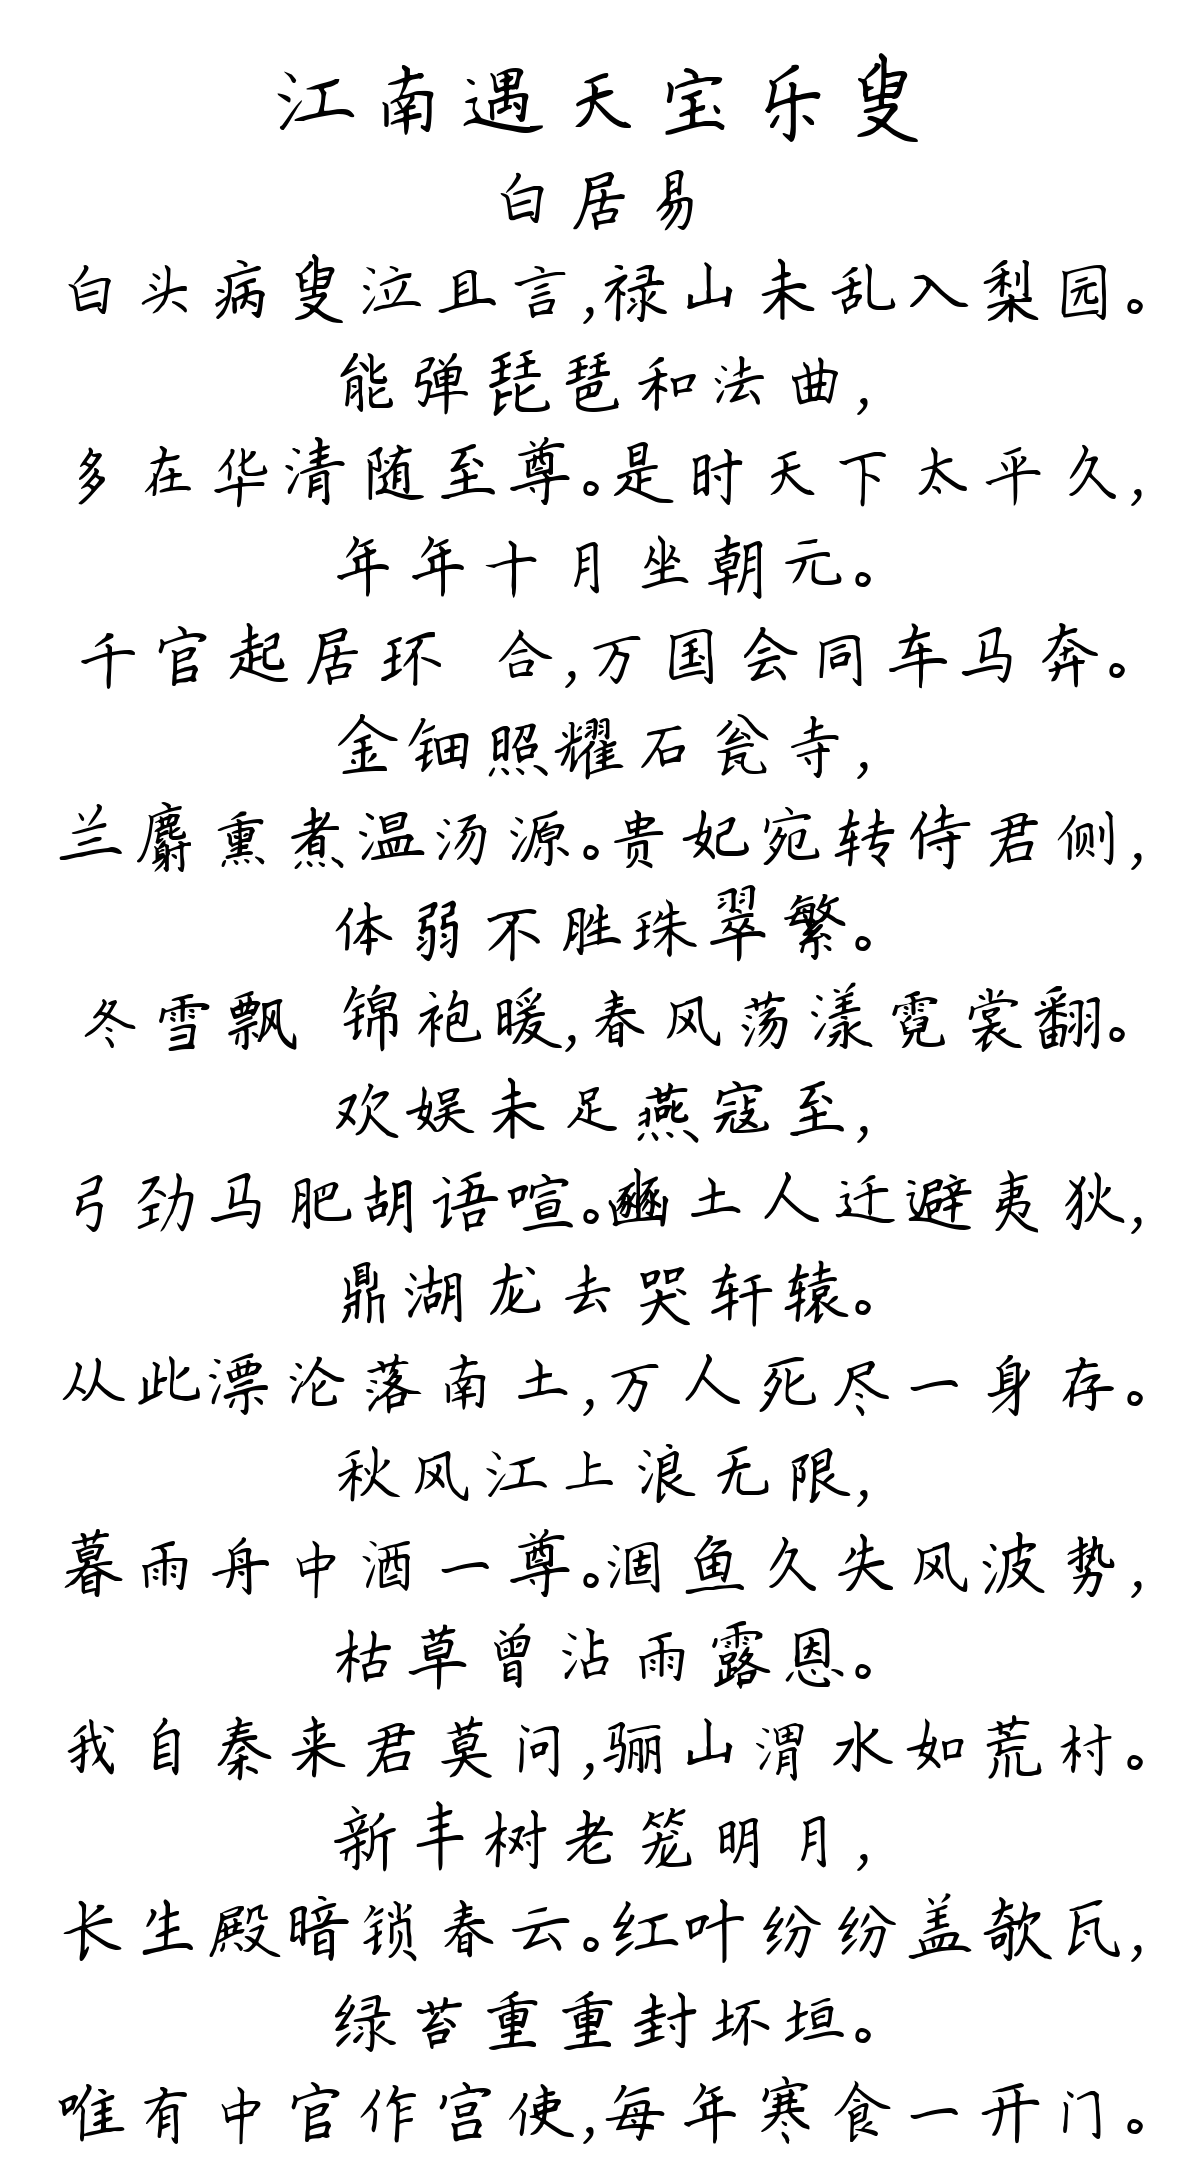 江南遇天宝乐叟
白居易
白头病叟泣且言,禄山未乱入梨园。
能弹琵琶和法曲,
多在华清随至尊。是时天下太平久,
年年十月坐朝元。
千官起居环 合,万国会同车马奔。
金钿照耀石瓮寺,
兰麝熏煮温汤源。贵妃宛转侍君侧,
体弱不胜珠翠繁。
冬雪飘 锦袍暖,春风荡漾霓裳翻。
欢娱未足燕寇至,
弓劲马肥胡语喧。豳土人迁避夷狄,
鼎湖龙去哭轩辕。
从此漂沦落南土,万人死尽一身存。
秋风江上浪无限,
暮雨舟中酒一尊。涸鱼久失风波势,
枯草曾沾雨露恩。
我自秦来君莫问,骊山渭水如荒村。
新丰树老笼明月,
长生殿暗锁春云。红叶纷纷盖欹瓦,
绿苔重重封坏垣。
唯有中官作宫使,每年寒食一开门。